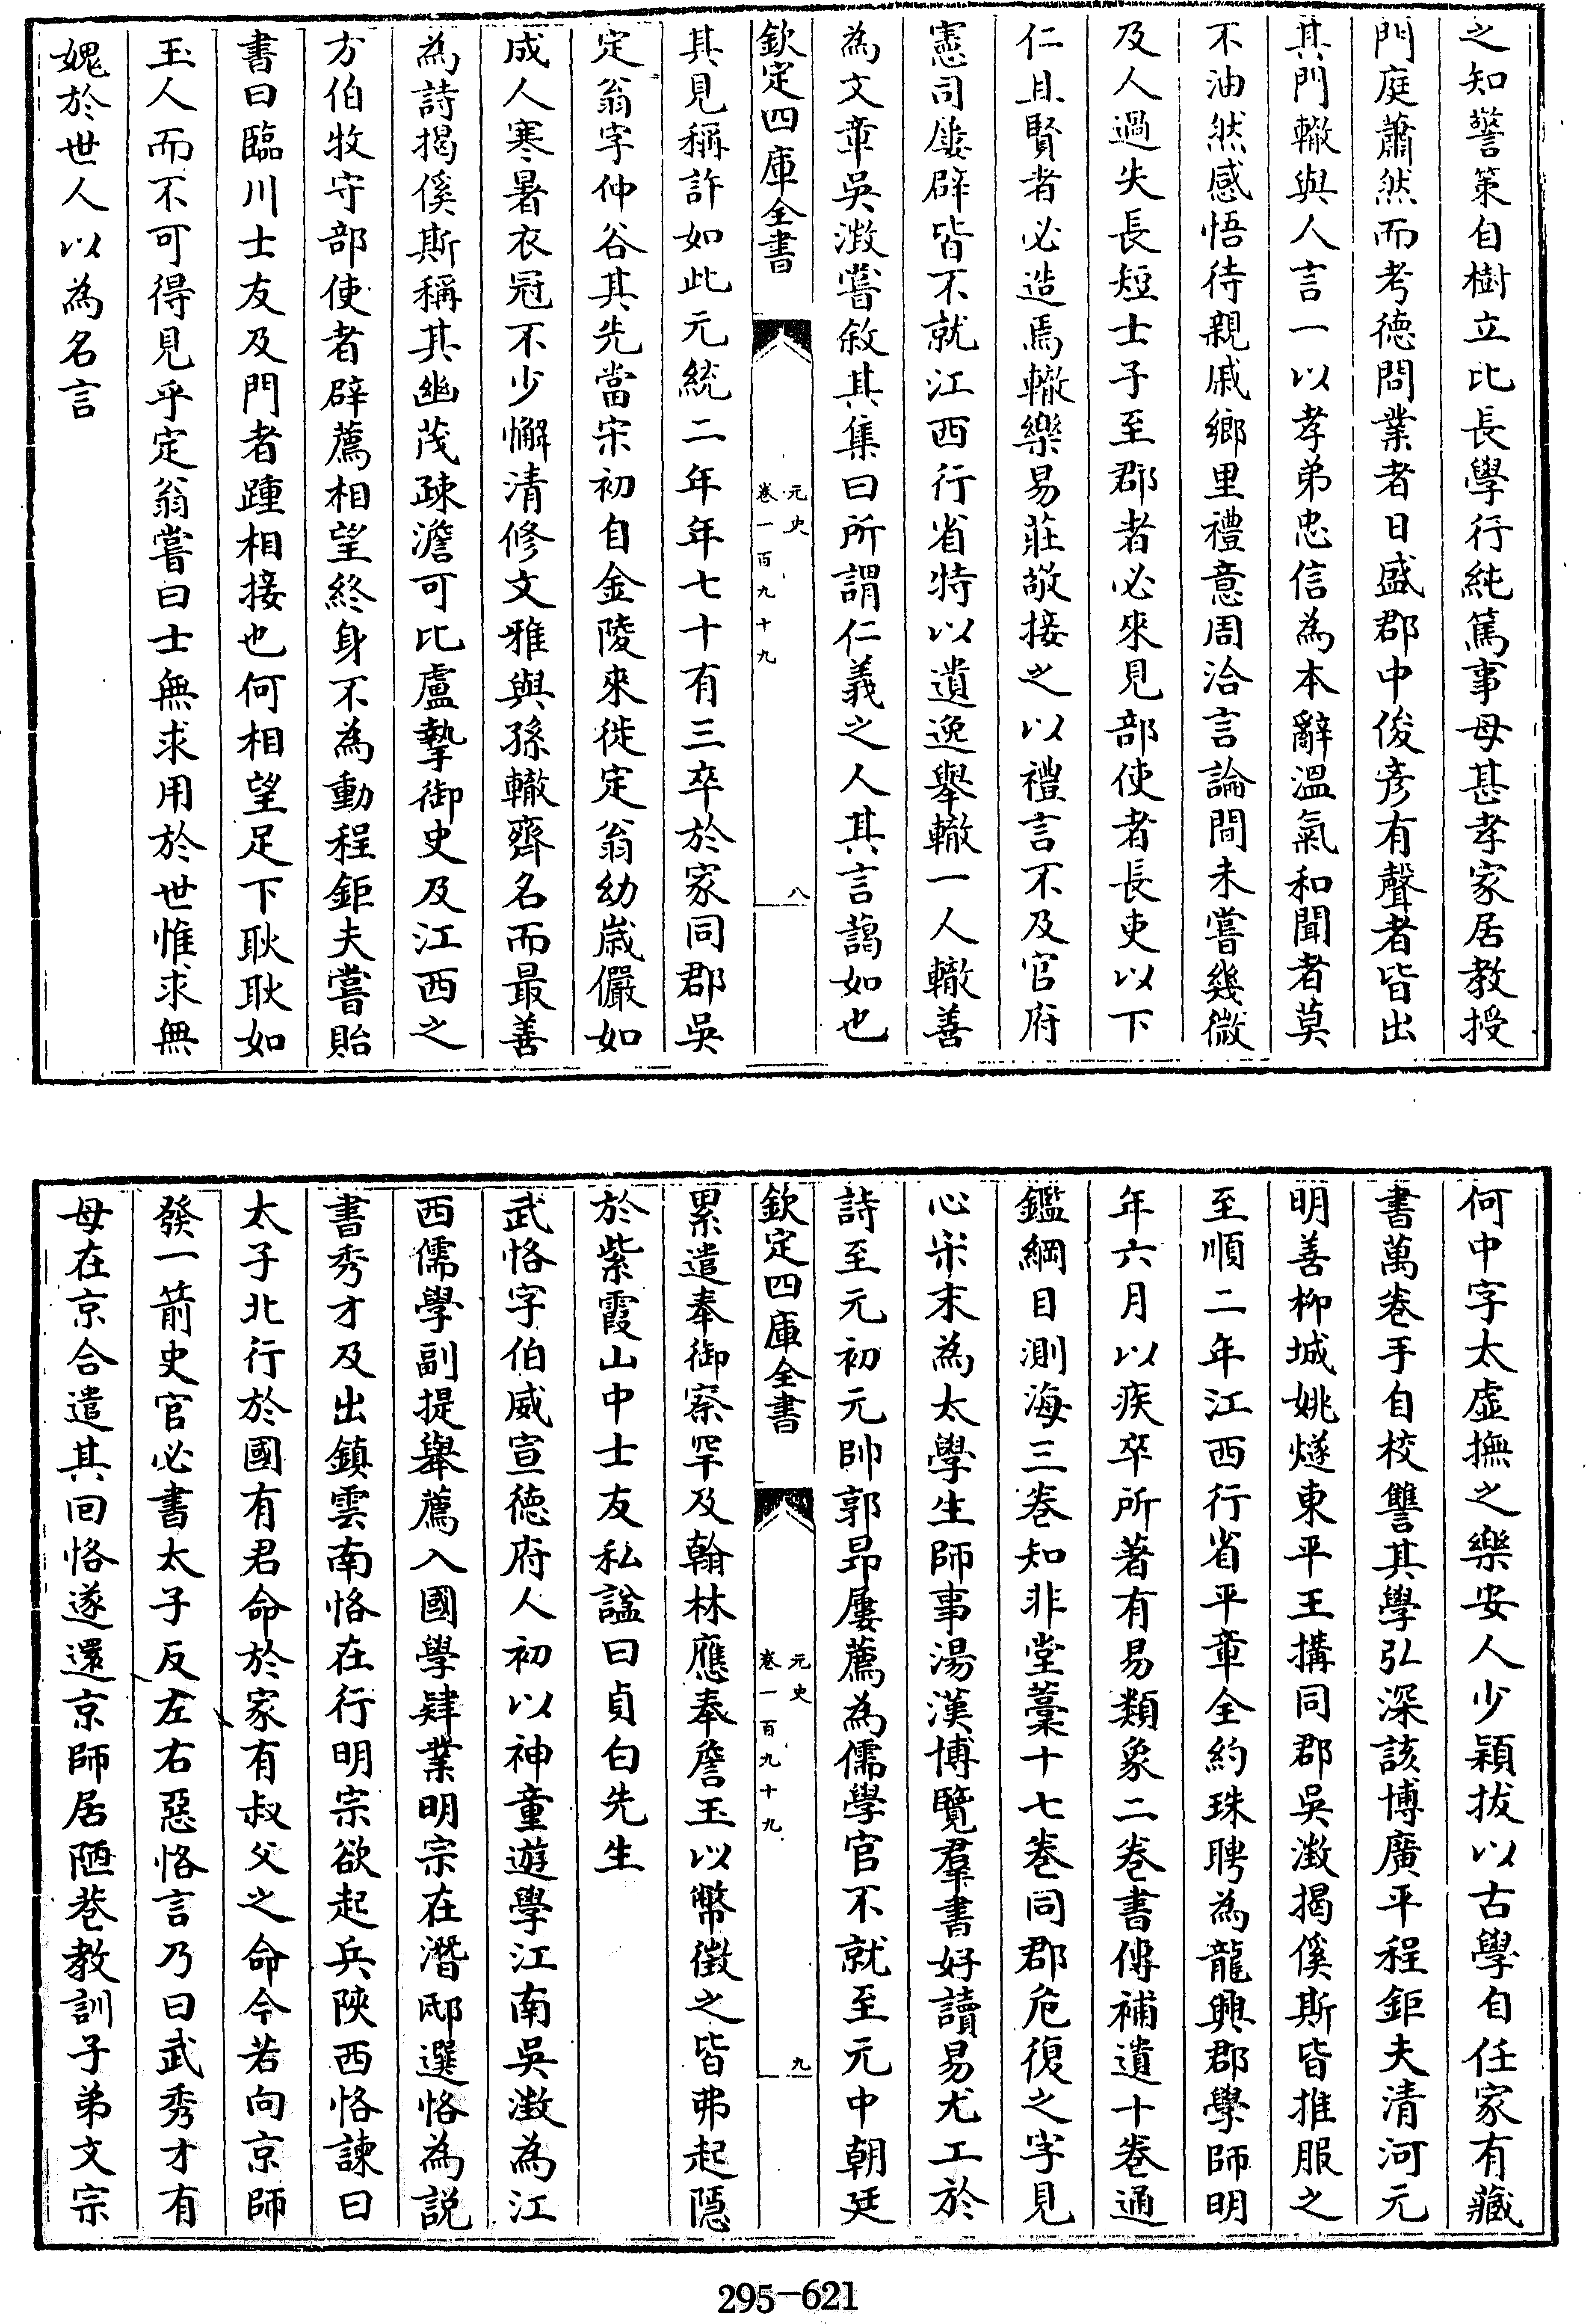 之知警策自樹立比長學行純篤事母甚孝家居教授
門庭蕭然而考德問業者日盛郡中俊彦有聲者皆出
其門轍與人言一以孝弟忠信為本辭溫氣和聞者莫
不油然感悟待親戚鄉里禮意周洽言論間未嘗幾微
及人過失長短士子至郡者必來見部使者長吏以下
仁且賢者必造焉轍樂易莊敬接之以禮言不及官府
憲司屢辟皆不就江西行省特以遺逸舉轍一人轍善
為文章吳澂嘗敘其集曰所謂仁義之人其言藹如也
欽定四庫全書
元史
卷一百九十九
八
其見稱許如此元統二年年七十有三卒於家同郡吳
定翁字仲谷其先當宋初自金陵來徙定翁幼歲儼如
成人寒暑衣冠不少懈清修文雅與孫轍齊名而最善
為詩揭傒斯稱其幽茂疎澹可比盧摯御史及江西之
方伯牧守部使者辟薦相望終身不為動程鉅夫嘗貽
書曰臨川士友及門者踵相接也何相望足下耿耿如
玉人而不可得見乎定翁嘗曰士無求用於世惟求無
媿於世人以為名言
何中字太虛撫之樂安人少穎拔以古學自任家有藏
書萬卷手自校讐其學弘深該博廣平程鉅夫清河元
明善柳城姚燧東平王搆同郡吳澂揭傒斯皆推服之
至順二年江西行省平章全約珠聘為龍興郡學師明
年六月以疾卒所著有易類象二卷書傳補遺十卷通
鑑綱目測海三卷知非堂藁十七卷同郡危復之字見
心宋末為太學生師事湯漢博覽羣書好讀易尤工於
詩至元初元帥郭昂屢薦為儒學官不就至元中朝廷
欽定四庫全書
元史
卷一百九十九
九
累遣奉御察罕及翰林應奉詹玉以幣徵之皆弗起隱
於紫霞山中士友私諡曰貞白先生
武恪字伯威宣德府人初以神童遊學江南吳澂為江
西儒學副提舉薦入國學肄業明宗在潛邸選恪為説
書秀才及出鎮雲南恪在行明宗欲起兵陝西恪諫曰
太子北行於國有君命於家有叔父之命今若向京師
發一箭史官必書太子反左右惡恪言乃曰武秀才有
母在京合遣其回恪遂還京師居陋巷教訓子弟文宗
295-621